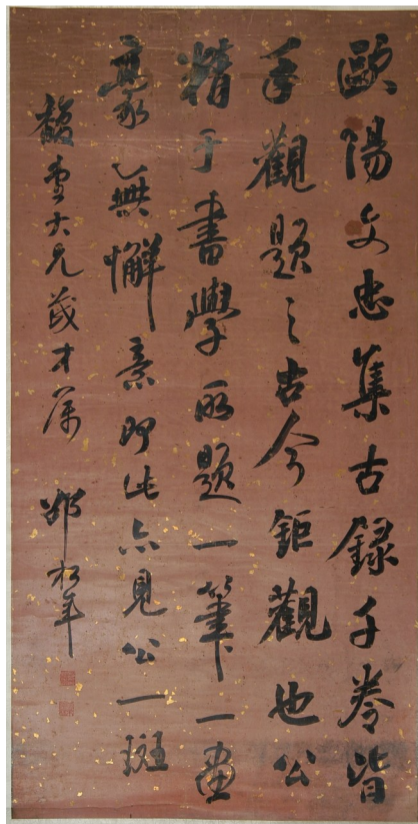 歐陽文忠集古録千卷皆
手觀題之古今鉅觀也公
精于書學所題一筆一畫
豪無懈意即此亦見公一斑
馥雲大兄茂才屬
邵松年